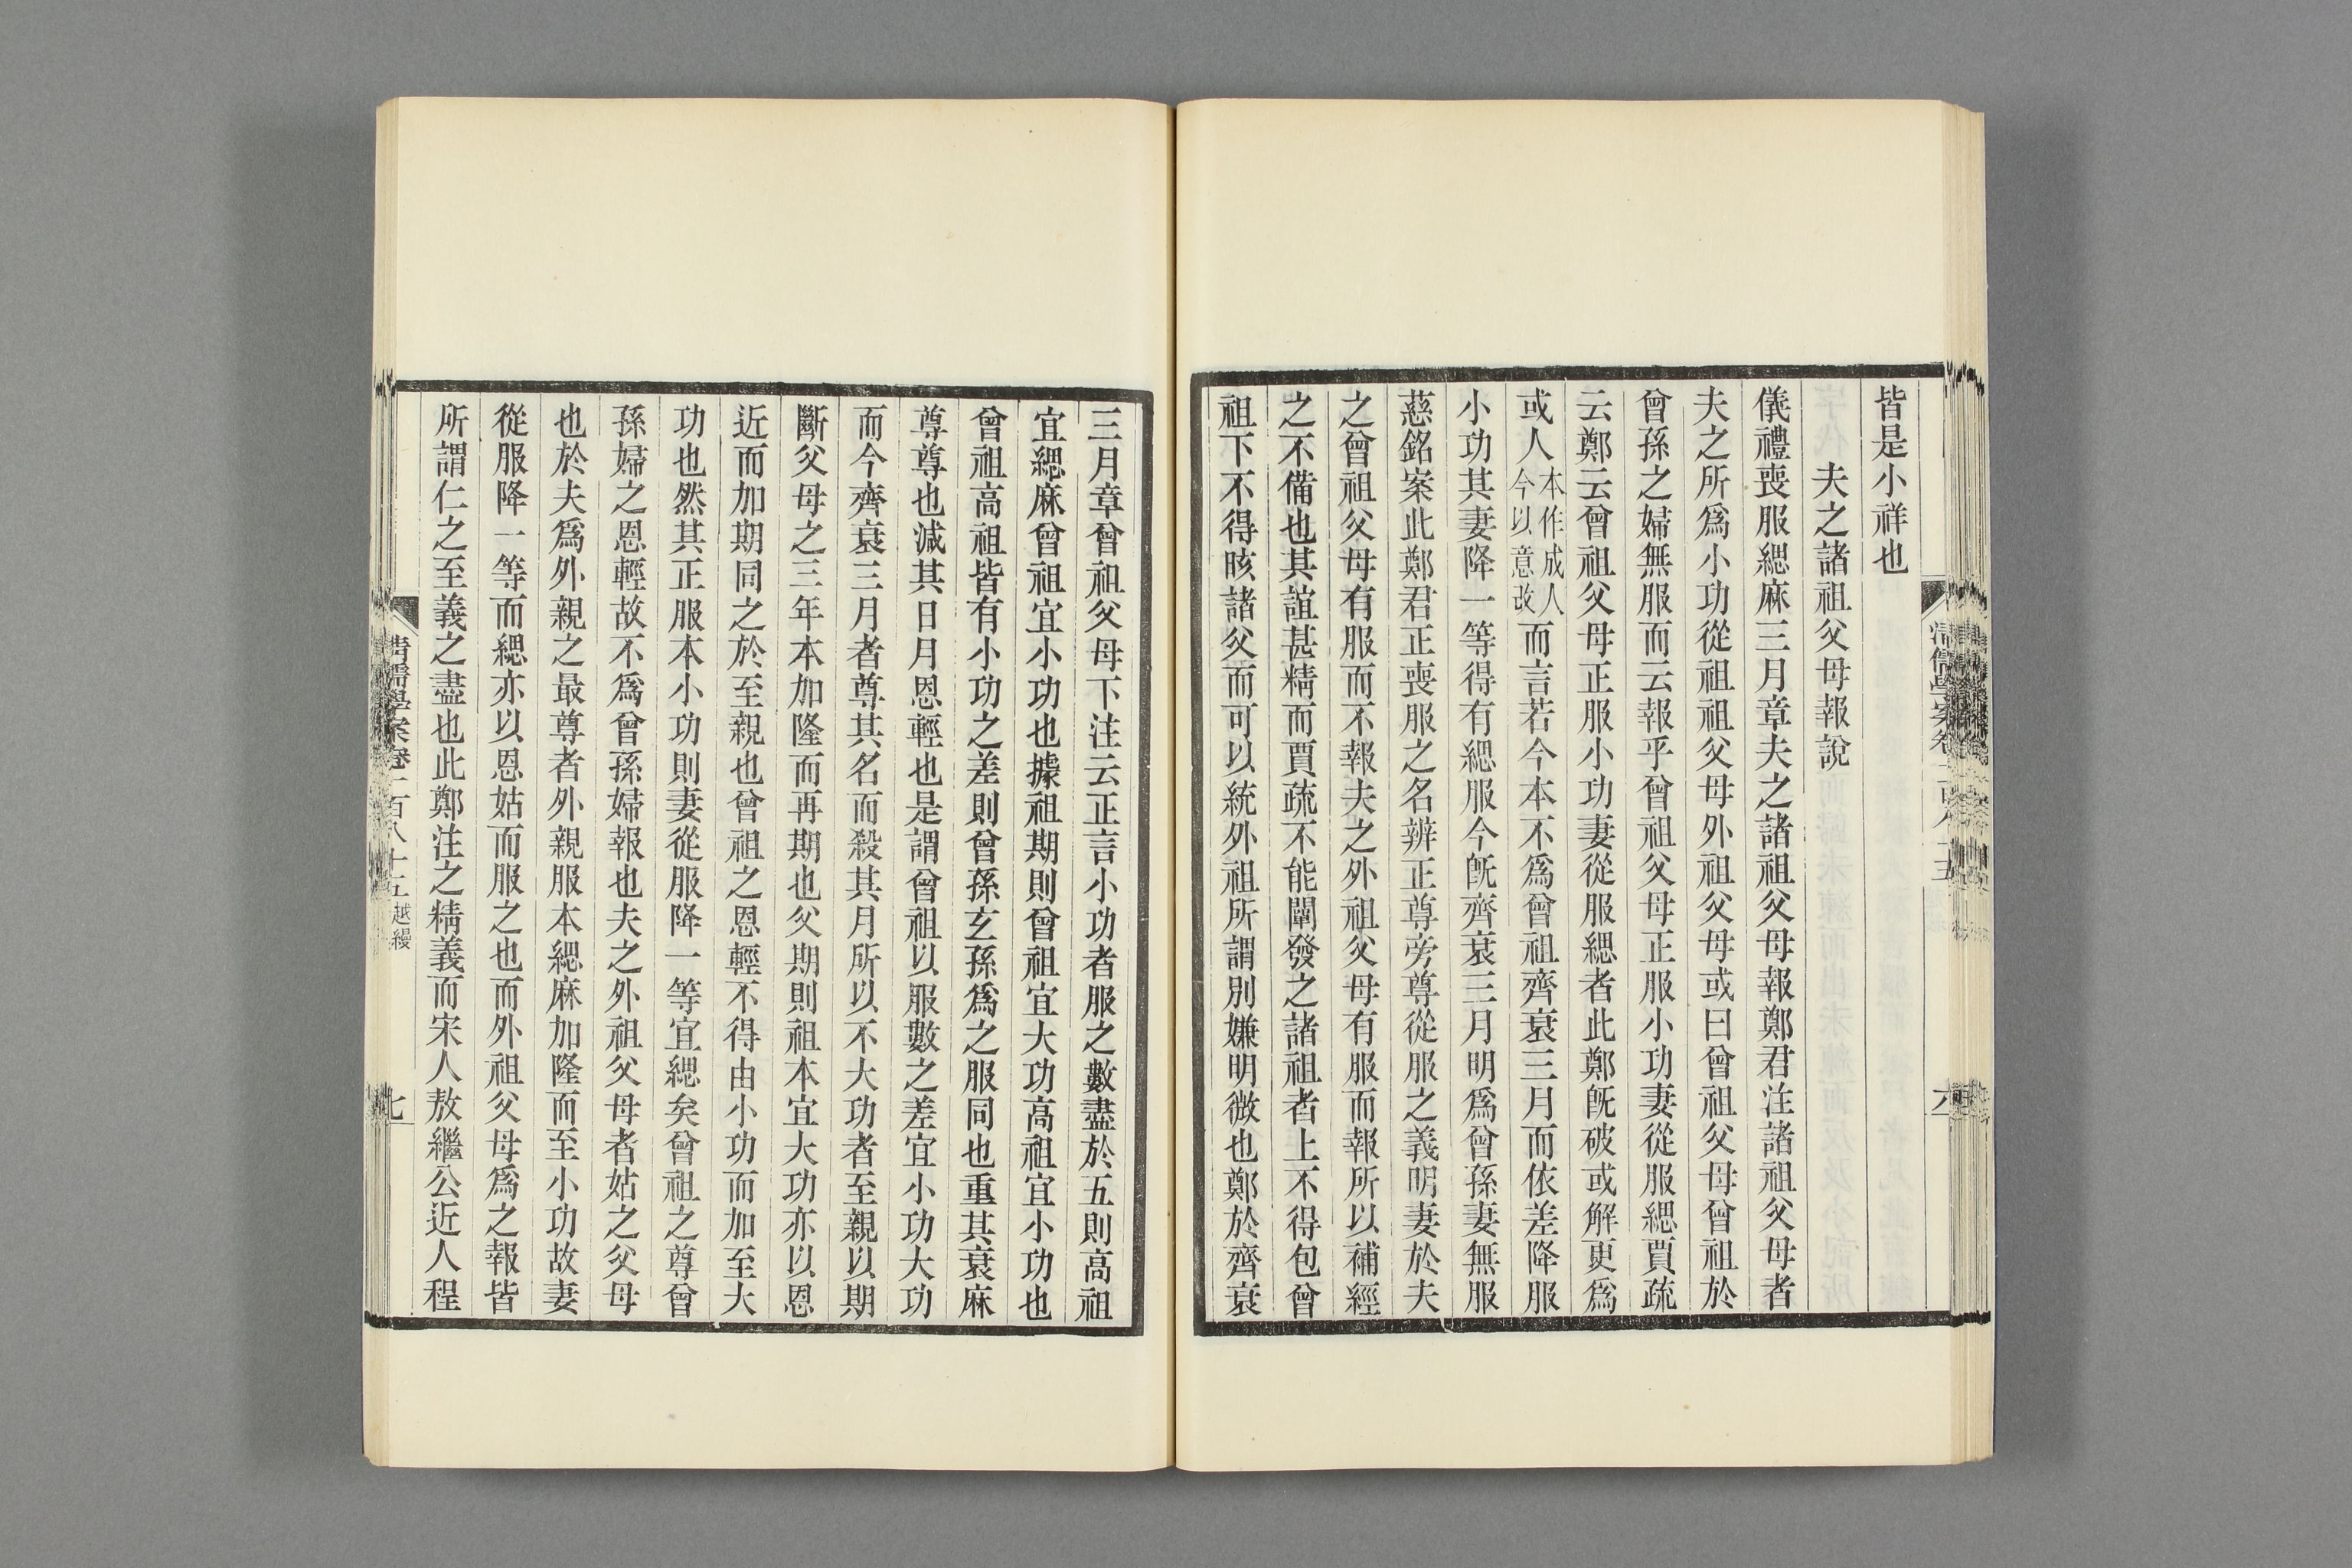 皆是小祥也
夫之諸祖父母報說
儀禮喪服緦麻三月章夫之諸祖父母報鄭君注諸祖父母者
夫之所爲小功從祖祖父母外祖父母或曰曾祖父母曾祖於
曾孫之婦無服而云報乎曾祖父母正服小功妻從服緦賈疏
云鄭云曾祖父母正服小功妻從服緦者此鄭旣破或解更爲
或人本作成人今以意改而言若今本不爲曾祖齊衰三月而依差降服
小功其妻降一等得有緦服今旣齊衰三月明爲曾孫妻無服
慈銘案此鄭君正喪服之名辨正尊旁尊從服之義明妻於夫
之曾祖父母有服而不報夫之外祖父母有服而報所以補經
之不備也其誼甚精而賈疏不能闡發之諸祖者上不得包曾
祖下不得晐諸父而可以統外祖所謂別嫌明微也鄭於齊衰
三月章曾祖父母下注云正言小功者服之數盡於五則高祖
宜緦麻曾祖宜小功也據祖期則曾祖宜大功高祖宜小功也
曾祖高祖皆有小功之差則曾孫玄孫爲之服同也重其衰麻
尊尊也減其日月恩輕也是謂曾祖以服數之差宜小功大功
而今齊衰三月者尊其名而殺其月所以不大功者至親以期
斷父母之三年本加隆而再期也父期則祖本宜大功亦以恩
近而加期同之於至親也曾祖之恩輕不得由小功而加至大
功也然其正服本小功則妻從服降一等宜緦矣曾祖之尊曾
孫婦之恩輕故不爲曾孫婦報也夫之外祖父母者姑之父母
也於夫爲外親之最尊者外親服本緦麻加隆而至小功故妻
從服降一等而緦亦以恩姑而服之也而外祖父母爲之報皆
所謂仁之至義之盡也此鄭注之精義而宋人敖繼公近人程
清儒學案卷一百八十五 越縵
七